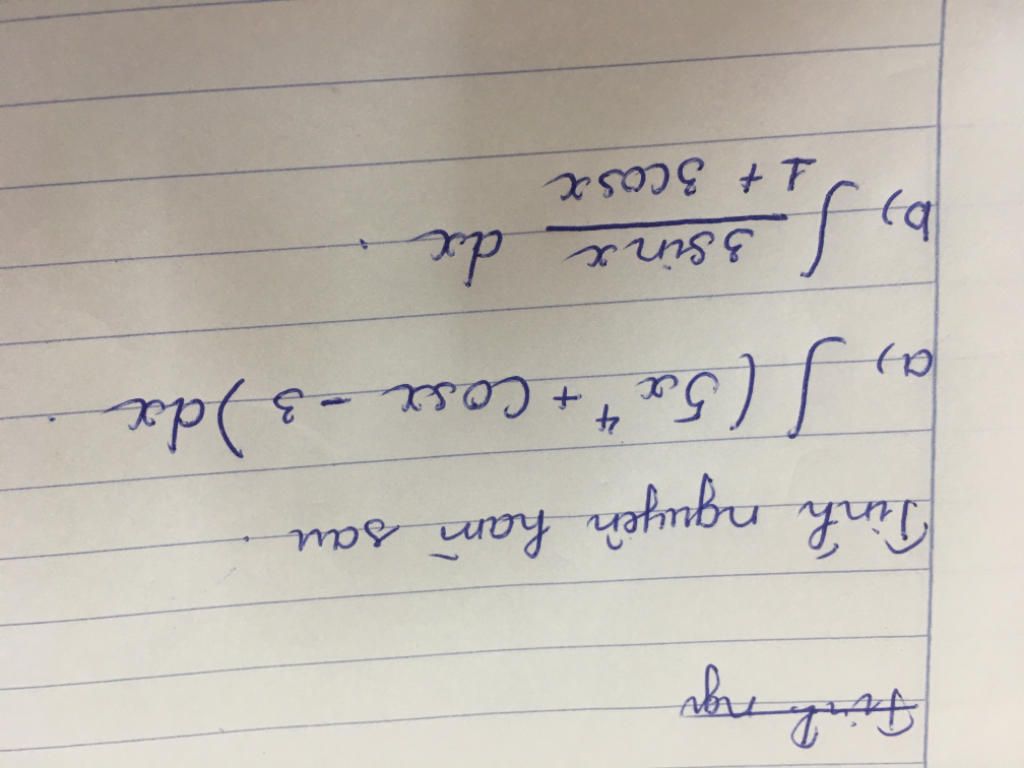 Tính ngu
Tính nguyên hàm sau.
a, ∫ (5x⁴ + cosx - 3) dx.
b, ∫ 3sinx / 1 + 3cosx dx.